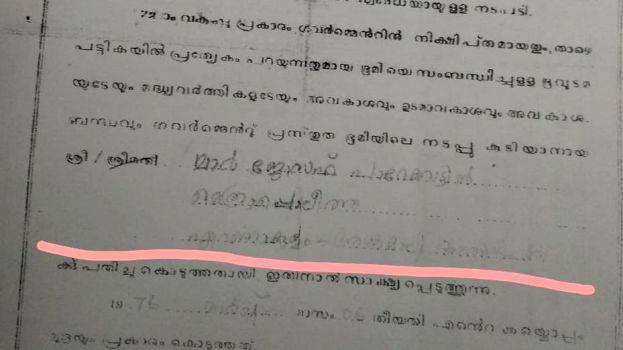 യുള്ള നടപടി.
72 ാം വകുപ്പു പ്രകാരം ഗവർമ്മെൻറിൻ നിക്ഷിപ്തമായതും, താഴെ
പട്ടികയിൽ പ്രത്യേകം പറയുന്നതുമായ ഭൂമിയെ സംബന്ധിച്ചുള്ള ഭൂവുടമ
യുടേയും മദ്ധ്യവർത്തികളുടേയും അവകാശവും ഉടമാവകാശവും അവകാശ
ബന്ധവും ഗവർമ്മെൻറ് പ്രസ്തുത ഭൂമിയിലെ നടപ്പു കുടിയാനായ
ശ്രീ / ശ്രീമതി മാർ ജോസഫ്
മെത്രാപ്പോലീത്ത
എറണാകുളം -
ക്കു പതിച്ചു കൊടുത്തതായി ഇതിനാൽ സാക്ഷ്യപ്പെടുത്തുന്നു.
19 76 മാസം തീയതി എൻെറ കയ്യൊപ്പും
മുദ്രയും പ്രകാരം കൊടുത്തത്.